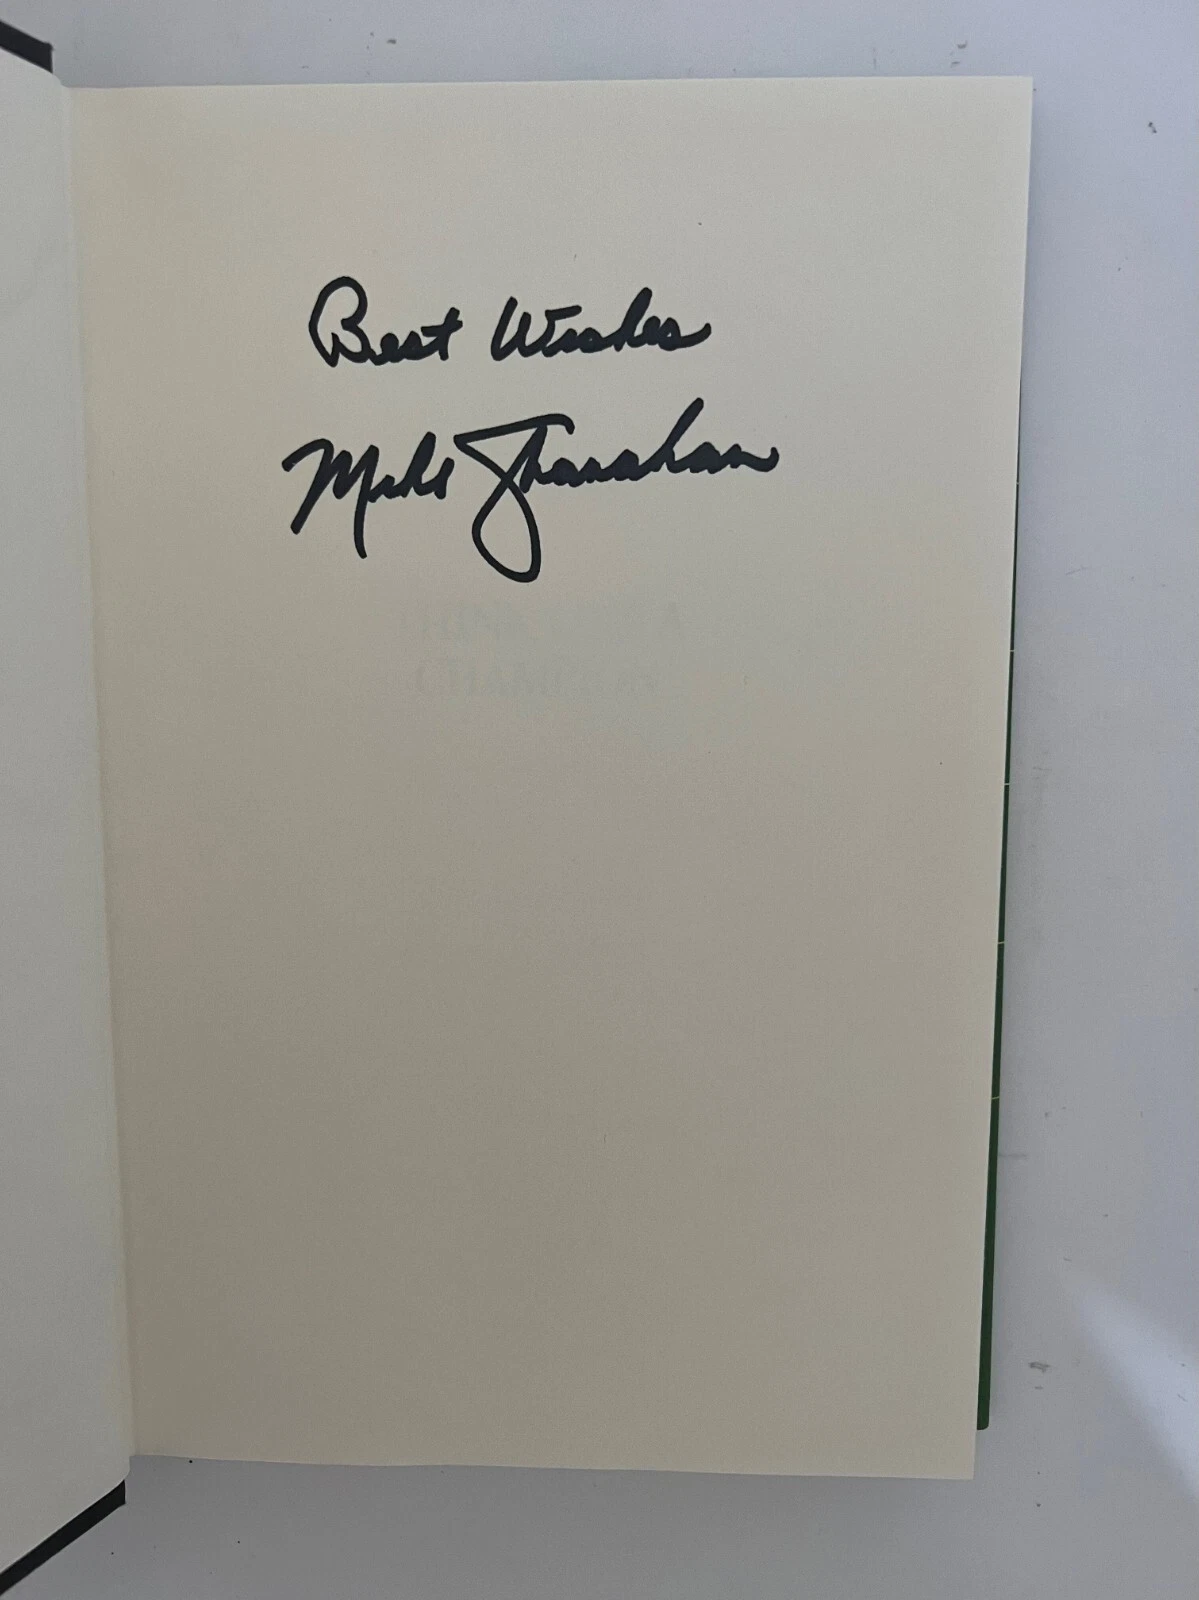 Best Wishes
Mike Shanahan